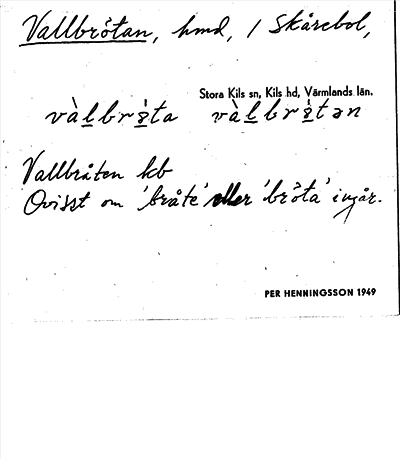 Vallbrötan, hmd, / Skårebol,
Stora Kils sn, Kils hd, Värmlands län.
và̀lbrɞ̀ta và̀lbrɞ̀tən
Vallbråten kb
Ovisst om 'bråte' eller 'bröta' ingår.
PER HENNINGSSON 1949